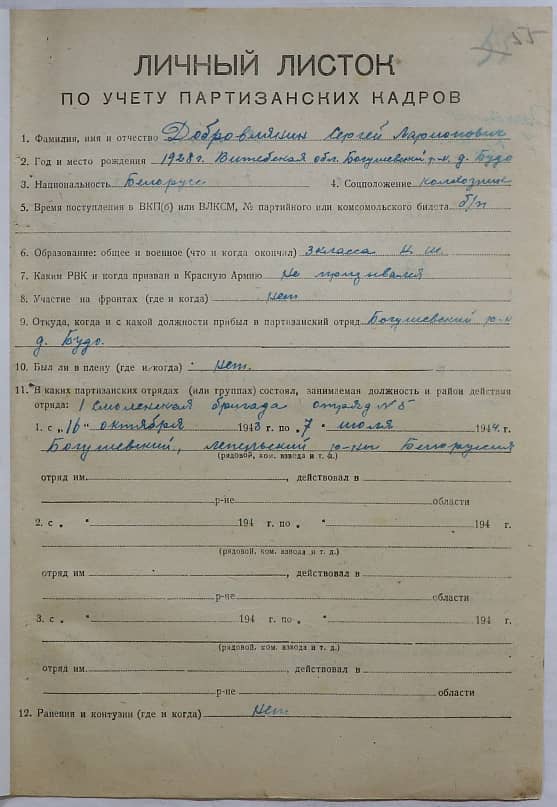 55
ЛИЧНЫЙ ЛИСТОК
ПО УЧЕТУ ПАРТИЗАНСКИХ КАДРОВ
1. Фамилия, имя и отчество Добровлянин Сергей Ларионович
2. Год и место рождения 1928 г. Витебская обл. Богушевский р-н д. Будо
3. Национальность Белорусс 4. Соцположение колхозник
5. Время поступления в ВКП(б) или ВЛКСМ, № партийного или комсомольского билета б/п
6. Образование: общее и военное (что и когда окончил) 3 класса н. ш.
7. Каким РВК и когда призван в Красную Армию Не призывался
8. Участие на фронтах (где и когда) нет
9. Откуда, когда и с какой должности прибыл в партизанский отряд Богушевский р-н
д. Будо.
10. Был ли в плену (где и когда) нет.
11. В каких партизанских отрядах (или группах) состоял, занимаемая должность и район действия
отряда: 1 Смоленская бригада отряд №5
1. с „16" октября 1943 г. по „7" июля 1944 г.
Богушевский, Лепельский р-ны Белоруссия
(рядовой, ком. взвода и т. д.)
отряд им , действовал в
р-не области
2. с „ " 194 г. по „ " 194 г.
(рядовой, ком. взвода и т. д.)
отряд им , действовал в
р-не области
3. с „ " 194 г. по „ " 194 г.
(рядовой, ком. взвода и т. д.)
отряд им. , действовал в
р-не области
12. Ранения и контузии (где и когда) Нет